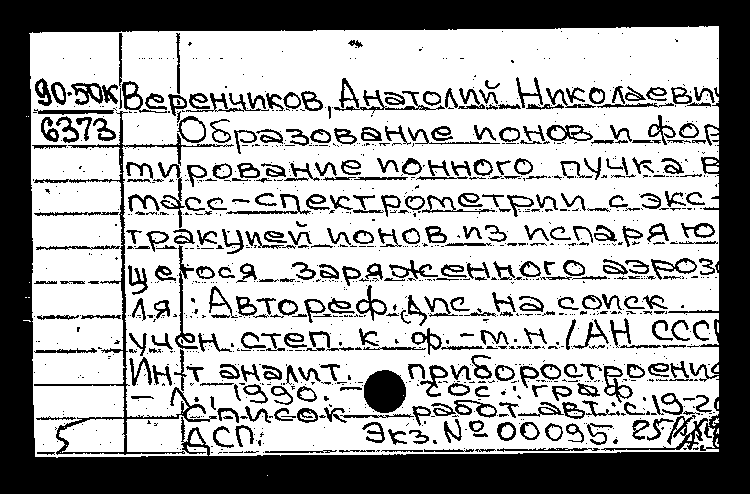 90-50К Веренчиков, Анатолий Николаевич
6373 Образование ионов и фор-
мирование ионного пучка в
масс-спектрометрии с экс-
тракцией ионов из испаряю-
щегося заряженного аэрозо-
ля : Автореф. дис. на соиск.
учен. степ. к. ф.-м. н. / АН СССР
Ин-т аналит. приборостроения
— Л., 1990. — 20с. : граф
Список работ авт.: с. 19-20
5 ДСП. Экз. № 00095.